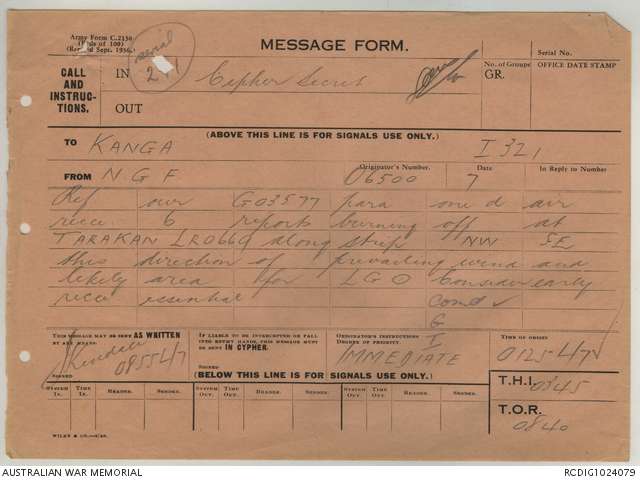 Army Form C.2136
(Pads of 100)
(Revised Sept. 1936.)
MESSAGE FORM.
Serial No.
CALL
AND
INSTRUC-
TIONS.
IN
OUT
serial
2
Cipher Secret
No. of Groups
GR.
OFFICE DATE STAMP
(ABOVE THIS LINE IS FOR SIGNALS USE ONLY.)
TO KANGA
I 321
FROM NGF
Originator's Number.
O6500
Date
7
In Reply to Number
Ref our GO3577 para one d air
recce 6 reports burning off at
TARAKAN LR0660 along strip NW SE
this direction of prevailing wind and
likely area for LGO Consider early
recce essential
Comd
G
I
THIS MESSAGE MAY BE SENT AS WRITTEN
BY ANY MEANS.
Kendall
0855 4/7
SIGNED
IF LIABLE TO BE INTERCEPTED OR FALL
INTO ENEMY HANDS, THIS MESSAGE MUST
BE SENT IN CYPHER.
SIGNED
ORIGINATOR'S INSTRUCTIONS
DEGREE OF PRIORITY
IMMEDIATE
TIME OF ORIGIN
0125 4/7
(BELOW THIS LINE IS FOR SIGNALS USE ONLY.)
T.H.I. 0845
SYSTEM IN. TIME IN. READER. SENDER. SYSTEM OUT. TIME OUT. READER. SENDER. SYSTEM OUT. TIME OUT. READER. SENDER.
T.O.R.
0840
AUSTRALIAN WAR MEMORIAL
RCDIG1024079